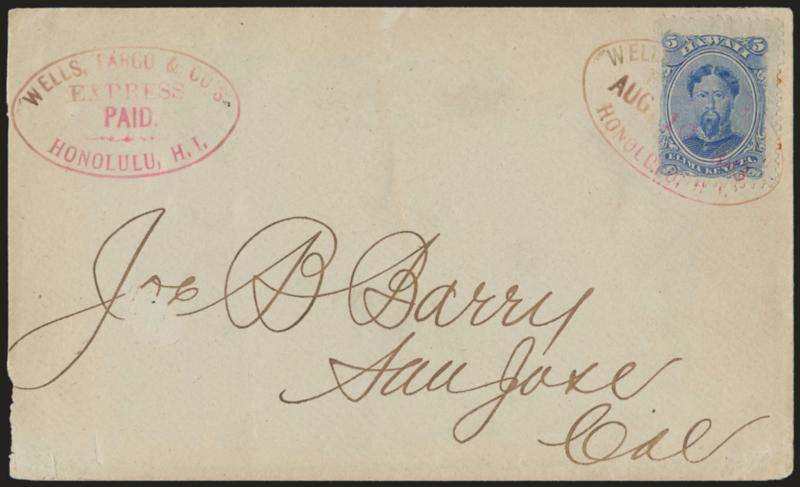 "WELLS, FARGO & CO'S"
EXPRESS
PAID.
HONOLULU, H. I.
WELL
AUG.
HONOLULU, H. I.
5 HAWAII 5
ELIMA KENETA.
Joe B Barry
San Jose
Cal.